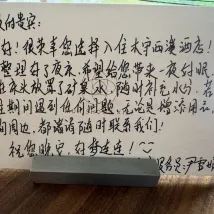 的贵宾：
好！很荣幸您选择入住太宇西溪酒店！
整理好了夜床，希望给您带来一夜好眠
在床头放置了矿泉水，随时补充水分，在
住期间遇到任何问题，无论是增添用衣
询周边，都请您随时联系我们！
祝您晚安，好梦连连！
服务员